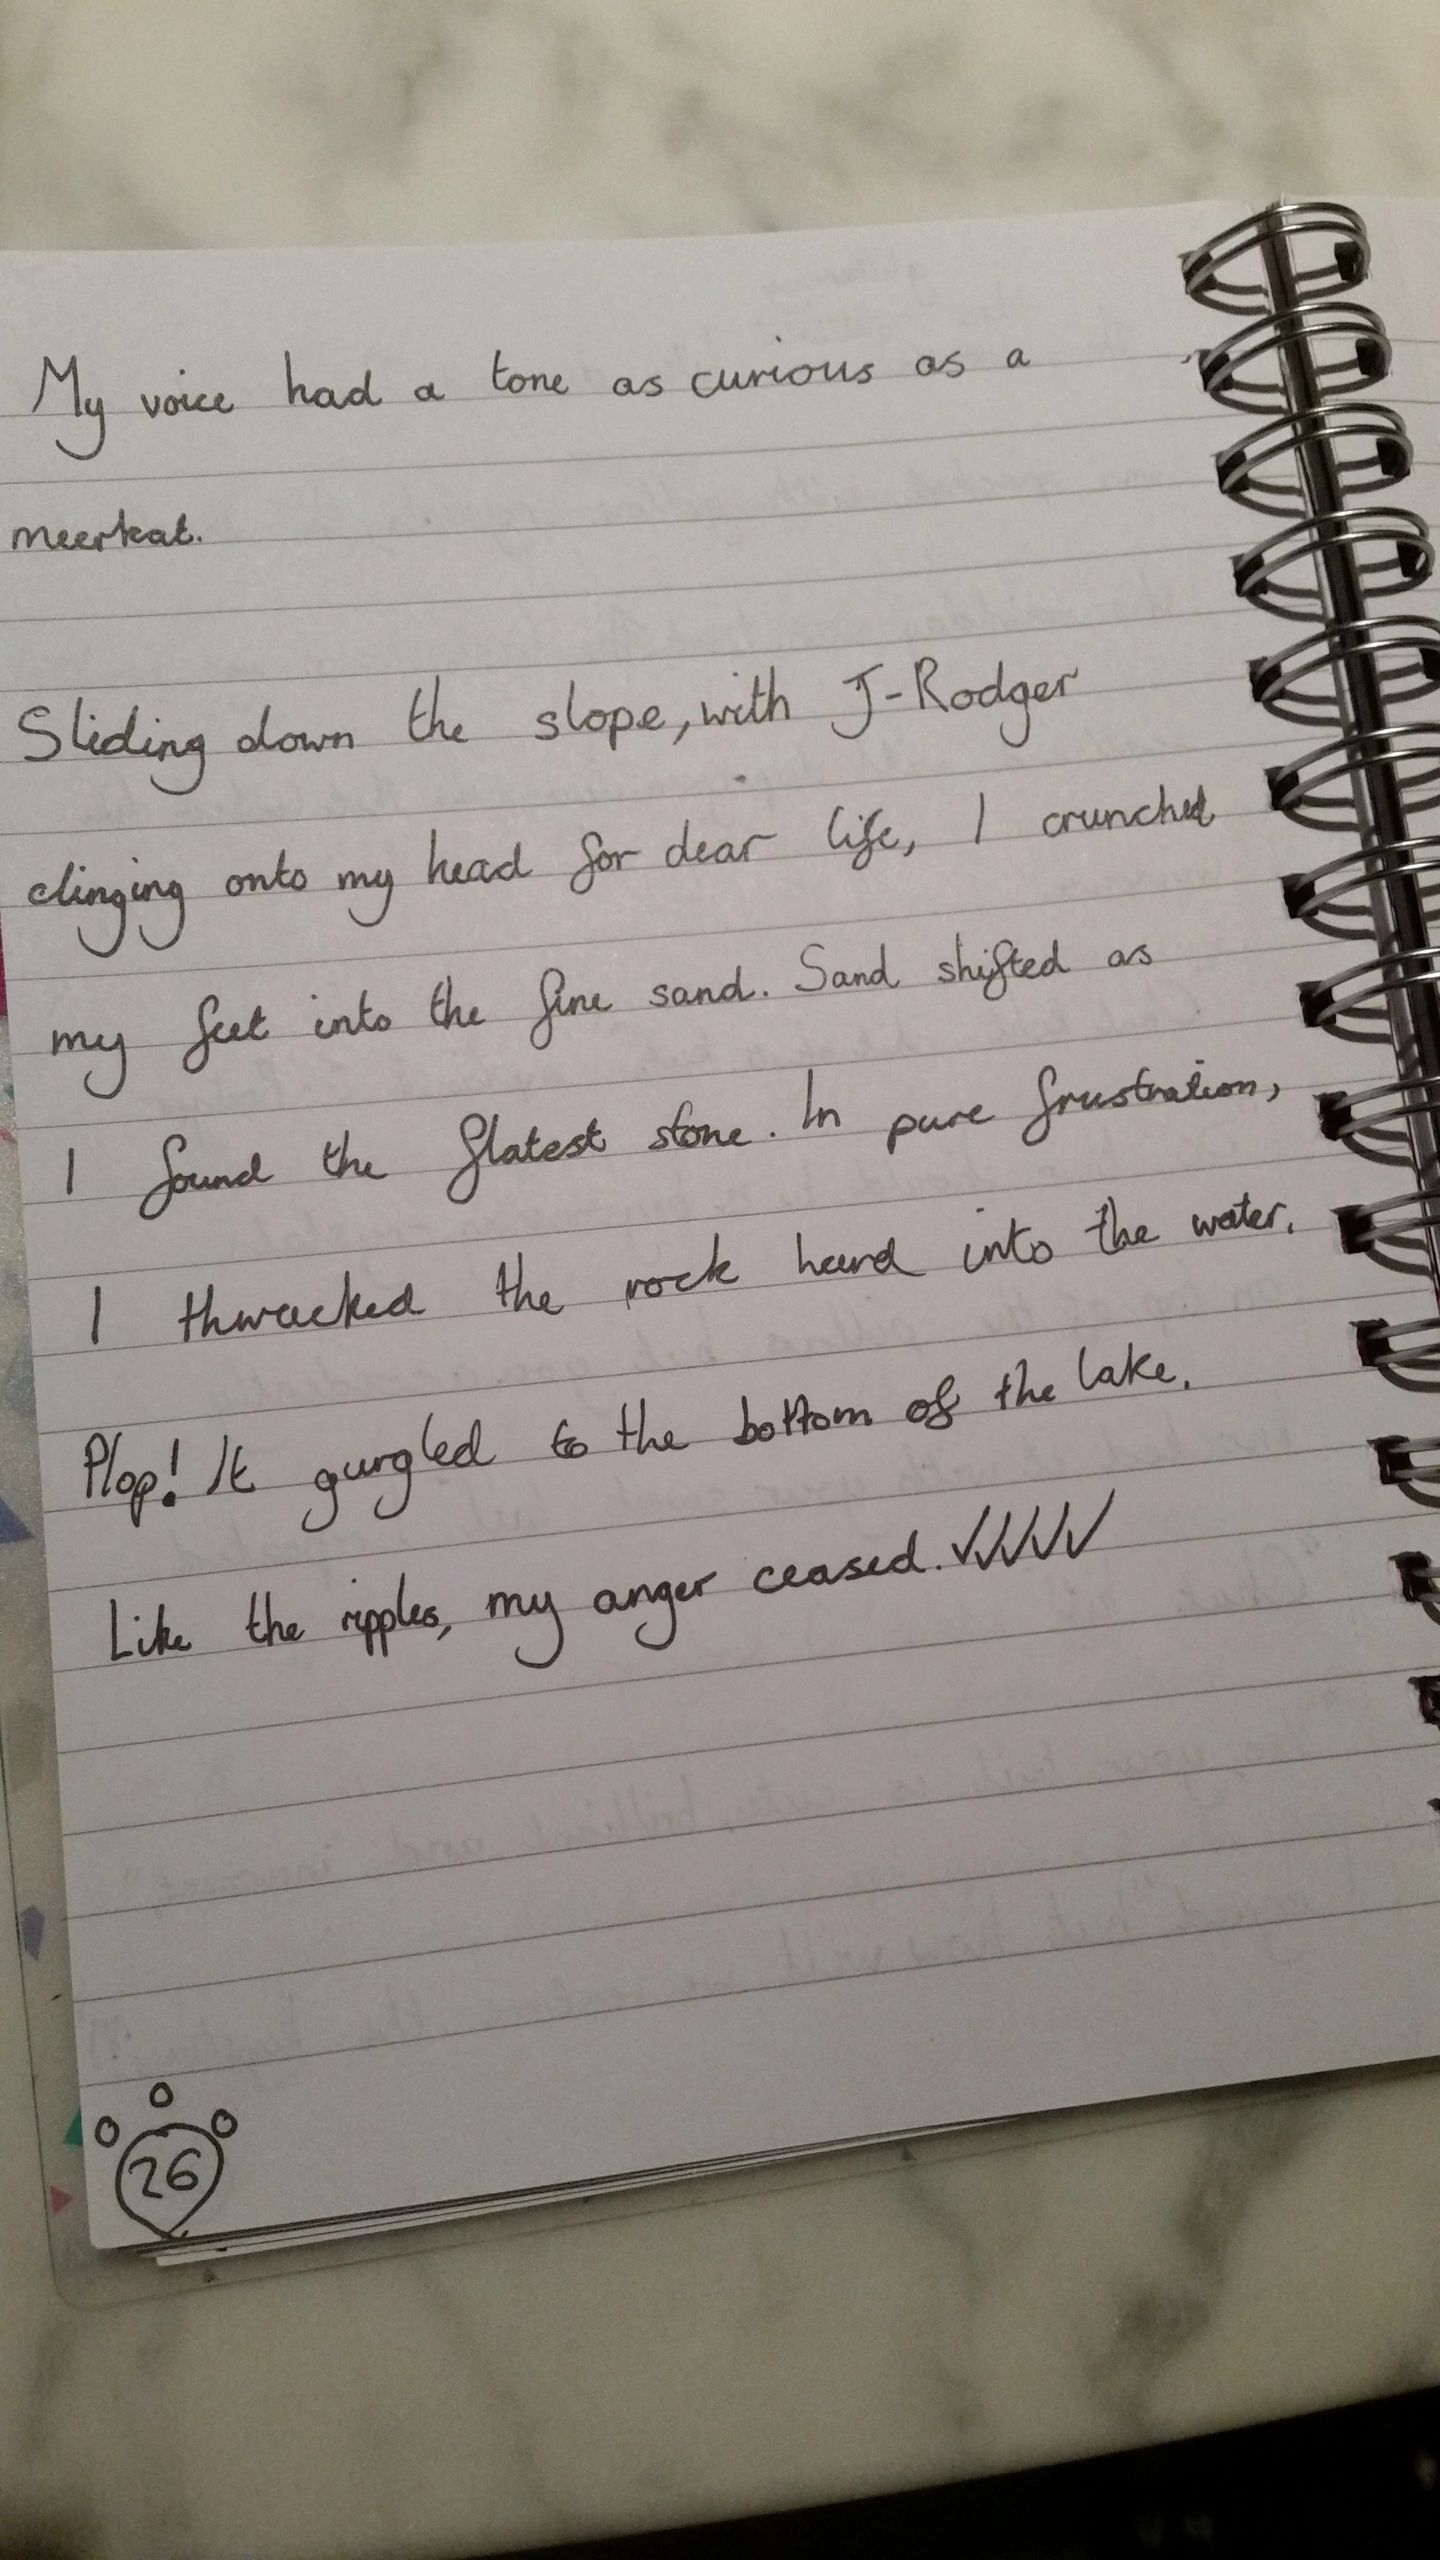 My voice had a tone as curious as a
meerkat.
Sliding down the slope, with J-Rodger
clinging onto my head for dear life, I crunched
my feet into the fine sand. Sand shifted as
I found the flatest stone. In pure frustration,
I thwacked the rock hard into the water.
Plop! It gurgled to the bottom of the lake.
Like the ripples, my anger ceased. ✓✓✓✓✓
26